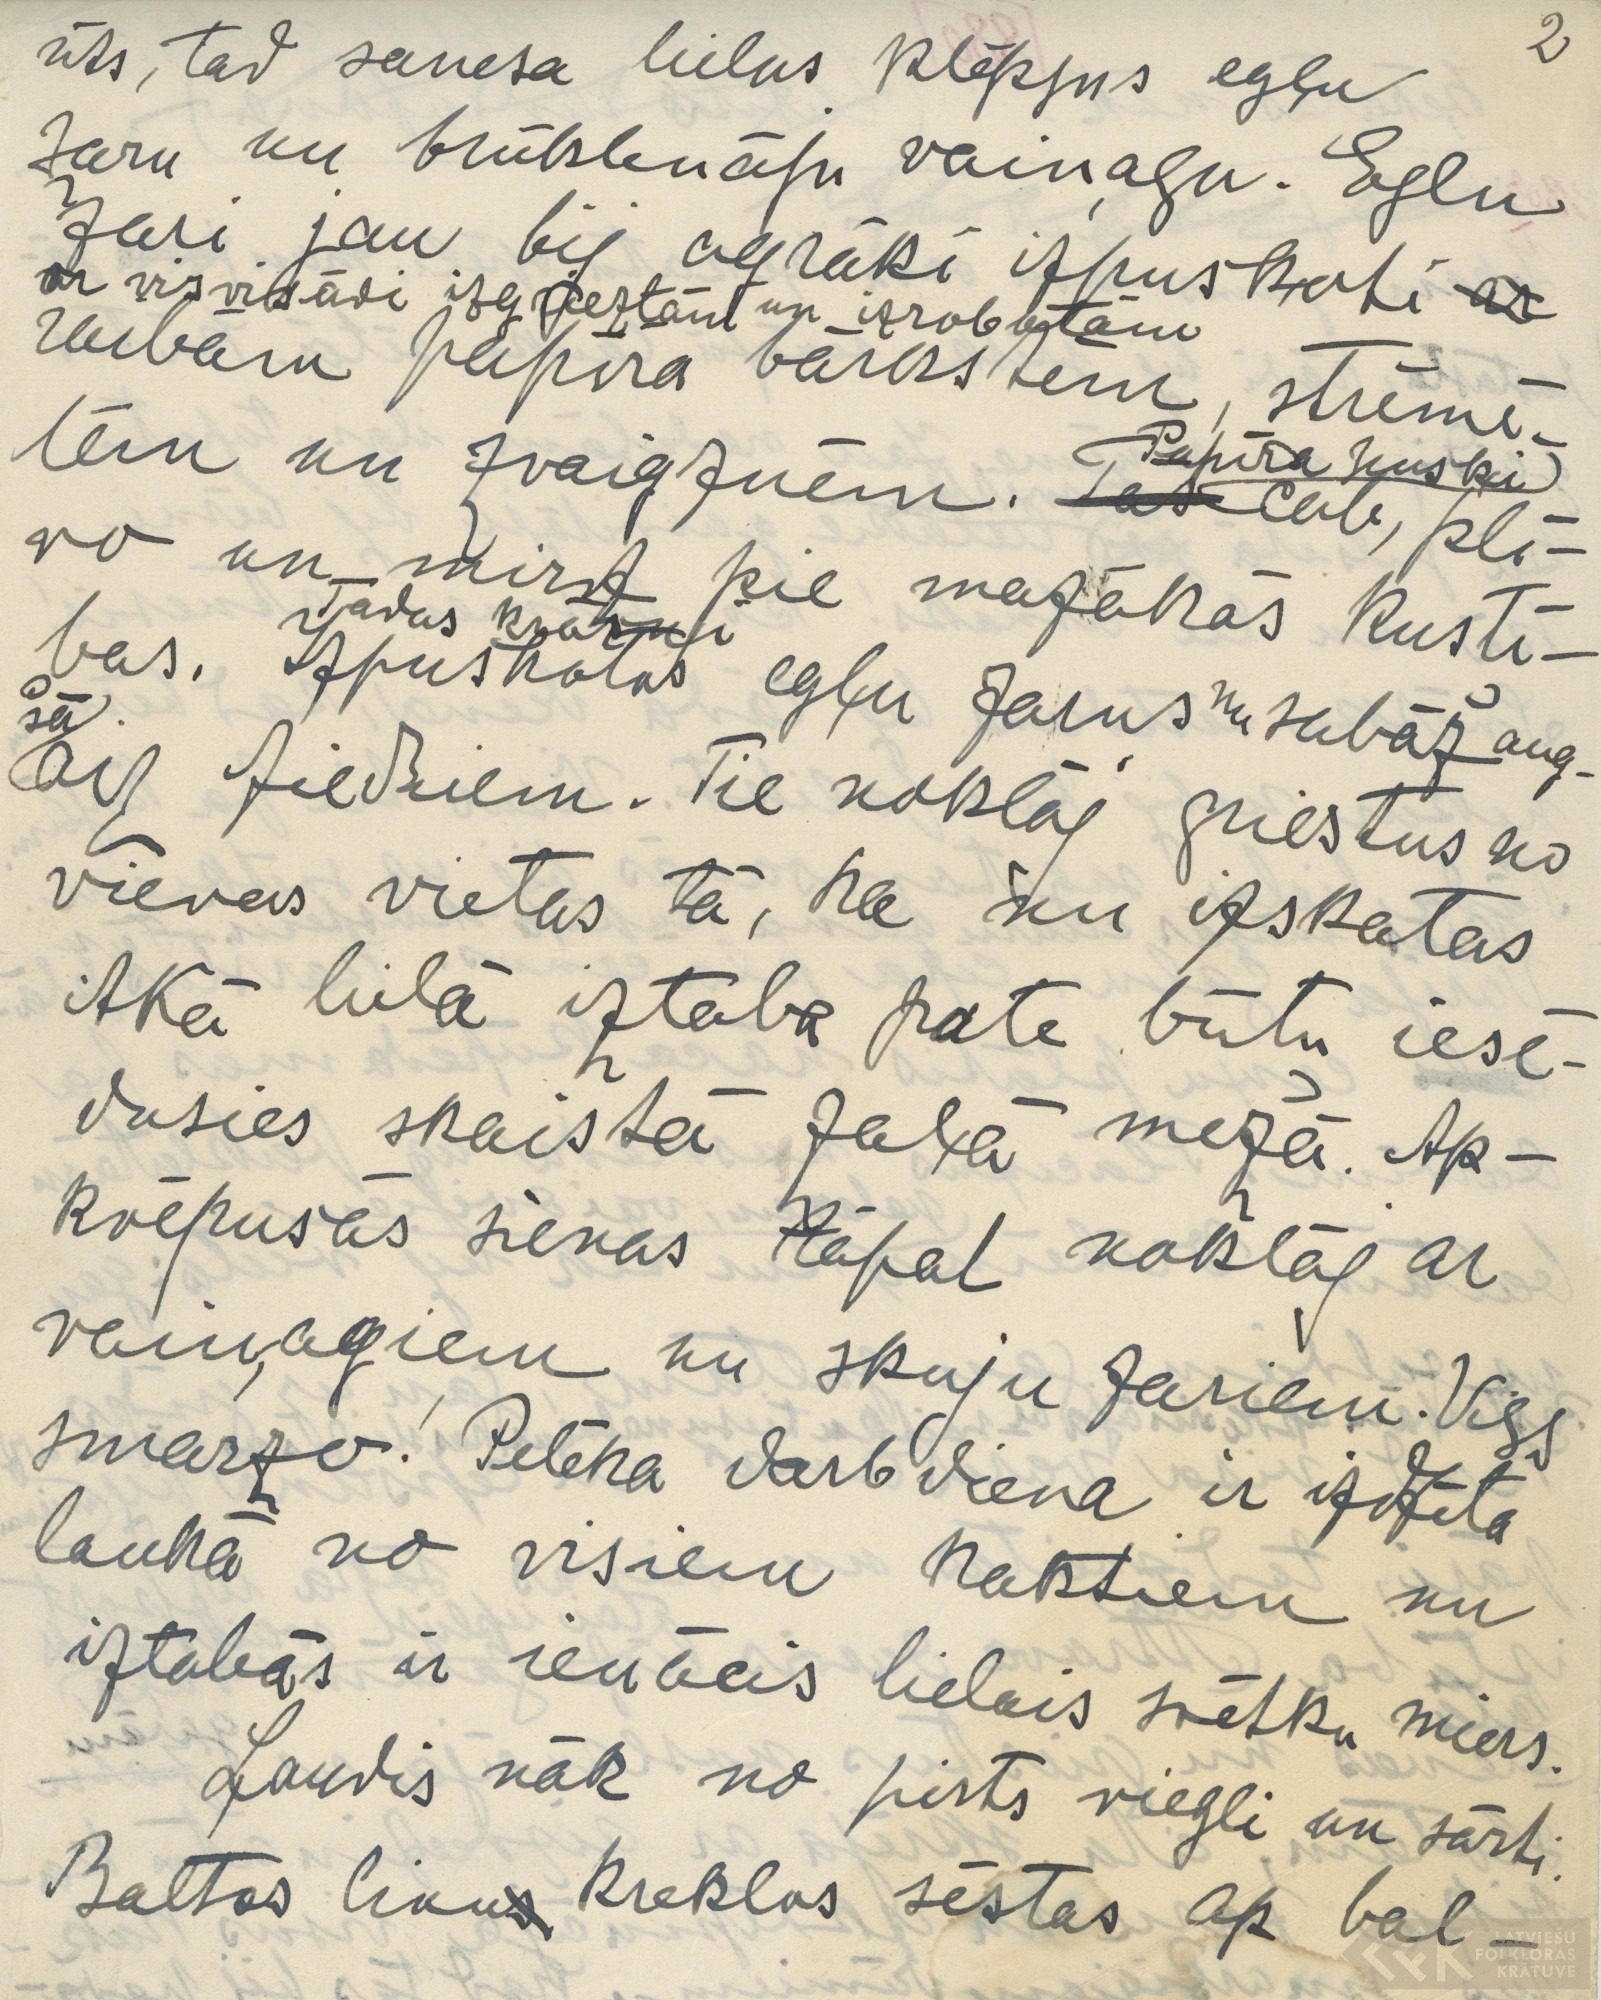 2
ūts, tad sanesa lielus klēpjus egļu
zaru un brūklenāju vaiņagu. Egļu
zari jau bij agrāki izpuškoti ar
ar visvisādi izgrieztām un izrobotām
raibām papīra bārkstēm, strēmē-
lēm un zvaigznēm. Tas
Papīra puski
čab, plī-
vo un mirdz pie mazākās kustī-
bas. Tādus krāšņi
Izpuškotus egļu zarus nu sabāž aug-
šā
aiz žiedriem. Tie noklāj griestus no
vienas vietas tā, ka nu izskatas
itkā lielā iztaba pate būtu iesē-
dusies skaistā zaļā mežā. Ap-
kvēpušās sienas tāpat noklāj ar
vaiņagiem un skuju zariem. Viss
smaržo! Pelēka darbdiena ir izdzīta
laukā no visiem kaktiem un
iztabās ir ienācis lielais svētku miers.
Ļaudis nāk no pirts viegli un sārti.
Baltos linu kreklos sēstas ap bal-
LATVIEŠU
FOLKLORAS
KRĀTUVE